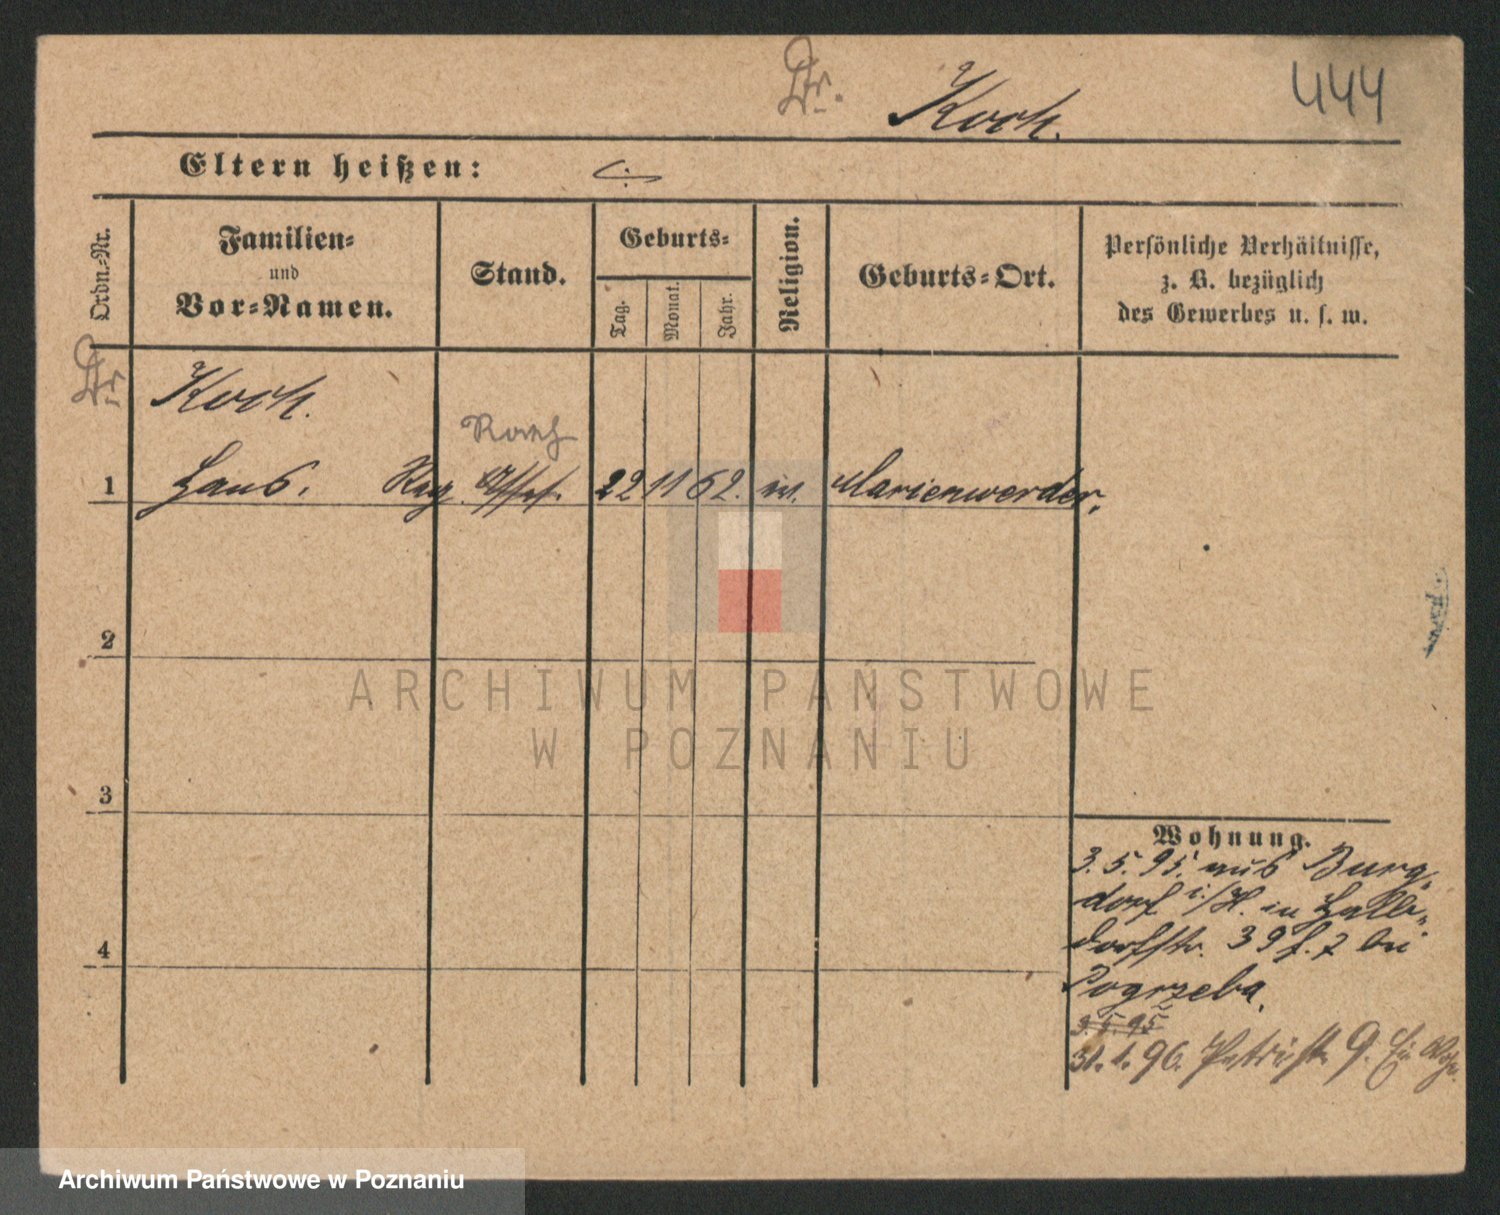 Dr. Koch. 444
Eltern heißen:
Ordn.-Nr.
Familien-
und
Vor-Namen.
Stand.
Geburts-
Tag.
Monat.
Jahr.
Religion.
Geburts-Ort.
Persönliche Verhältnisse,
z. B. bezüglich
des Gewerbes u. s. w.
Dr Koch.
Rath
1 Hans. Reg. Assess. 22 11 62. ev. Marienwerder.
2
3
4
Wohnung.
3.5.95. aus Burg-
dorf i/H. in Halb-
dorfstr. 39 f. 7 bei
Pogrzeba.
3.5.95
31.1.96. Petristr. 9.
ARCHIWUM PAŃSTWOWE
W POZNANIU
Archiwum Państwowe w Poznaniu